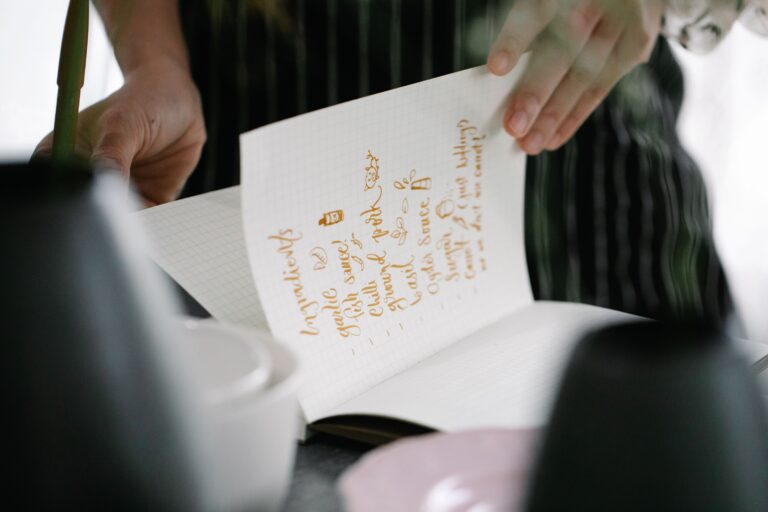 Ingredients
- garlic
- fish sauce!
- Chilli
- ground pork
- basil
- Oyster sauce
- Sugar
- Carrot (just kidding!
no we don't use carrot!